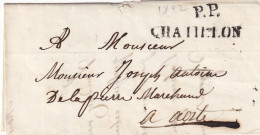 P.P.
CHATILLON
A Monsieur
Monsieur Joseph Antoine
Delapierre Marchand
a aoste